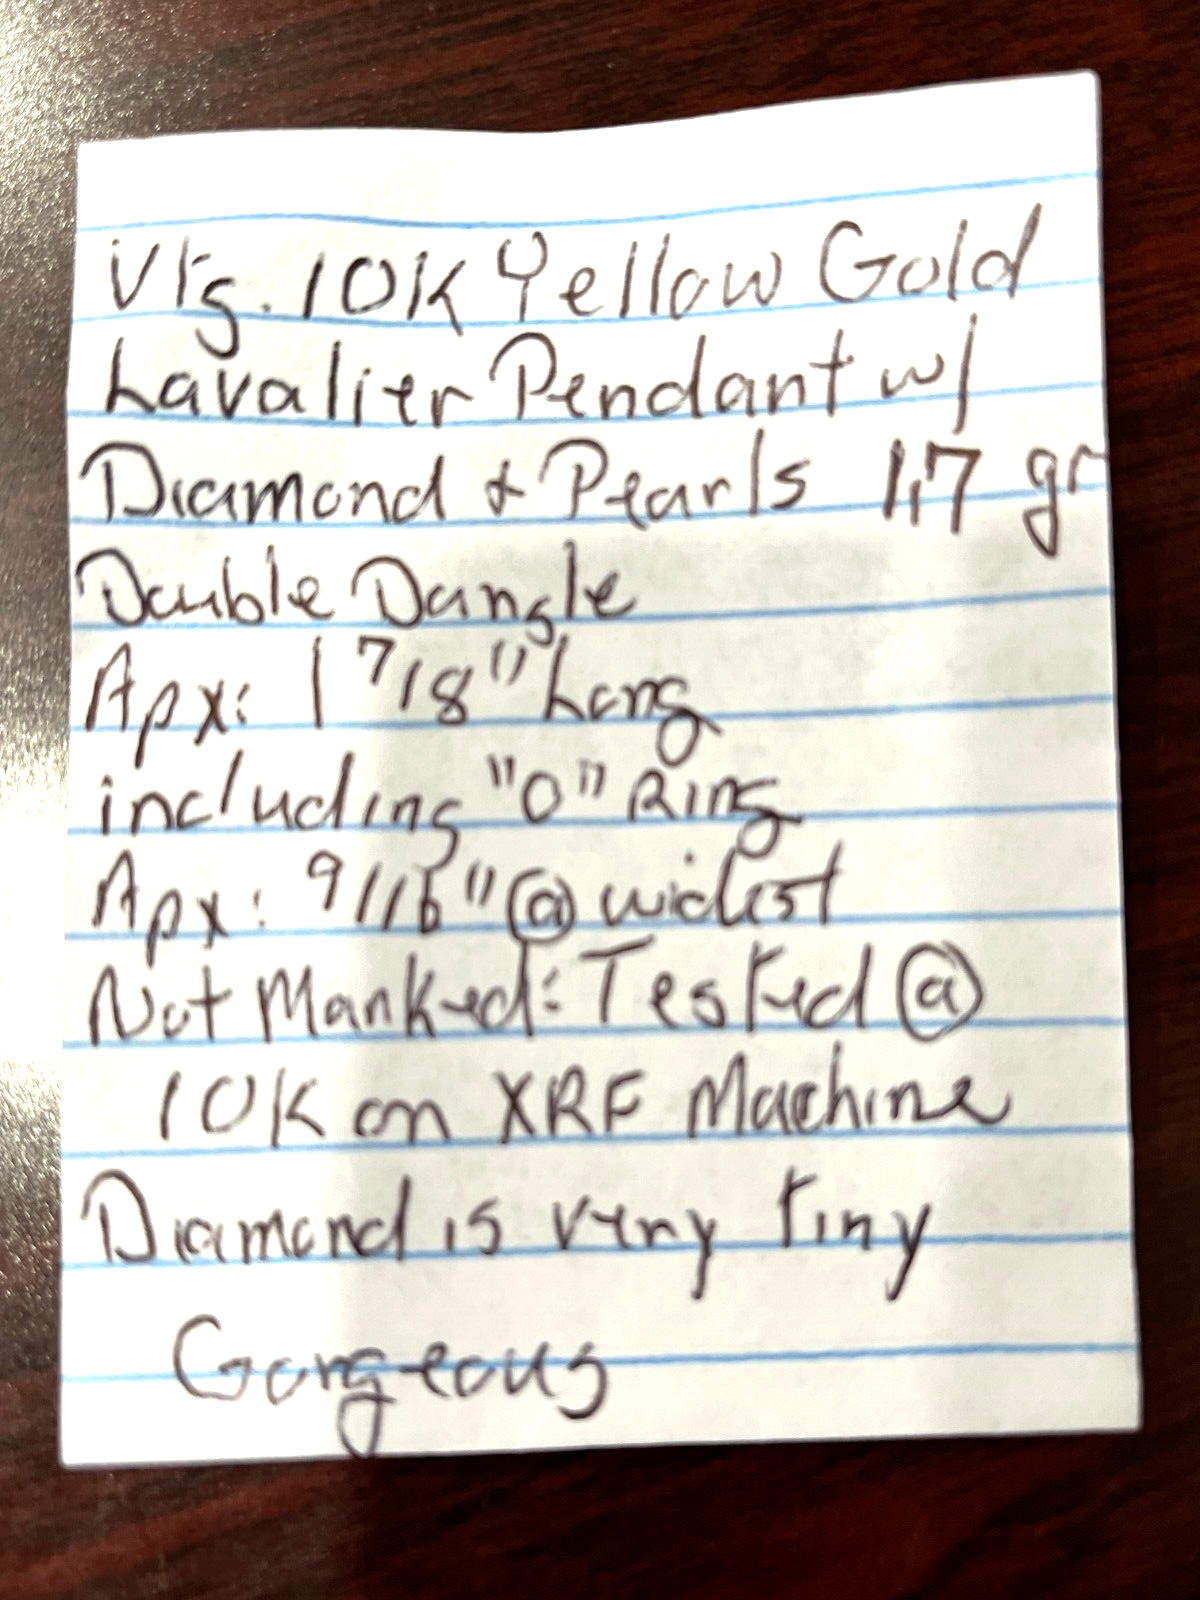 Vtg. 10K Yellow Gold
Lavalier Pendant w/
Diamond & Pearls 1.7 gr
Double Dangle
Apx: 1 7/8" Long
including "O" Ring
Apx: 9/16" @ widest
Not Marked: Tested @
10K on XRF Machine
Diamond is very tiny
Gorgeous